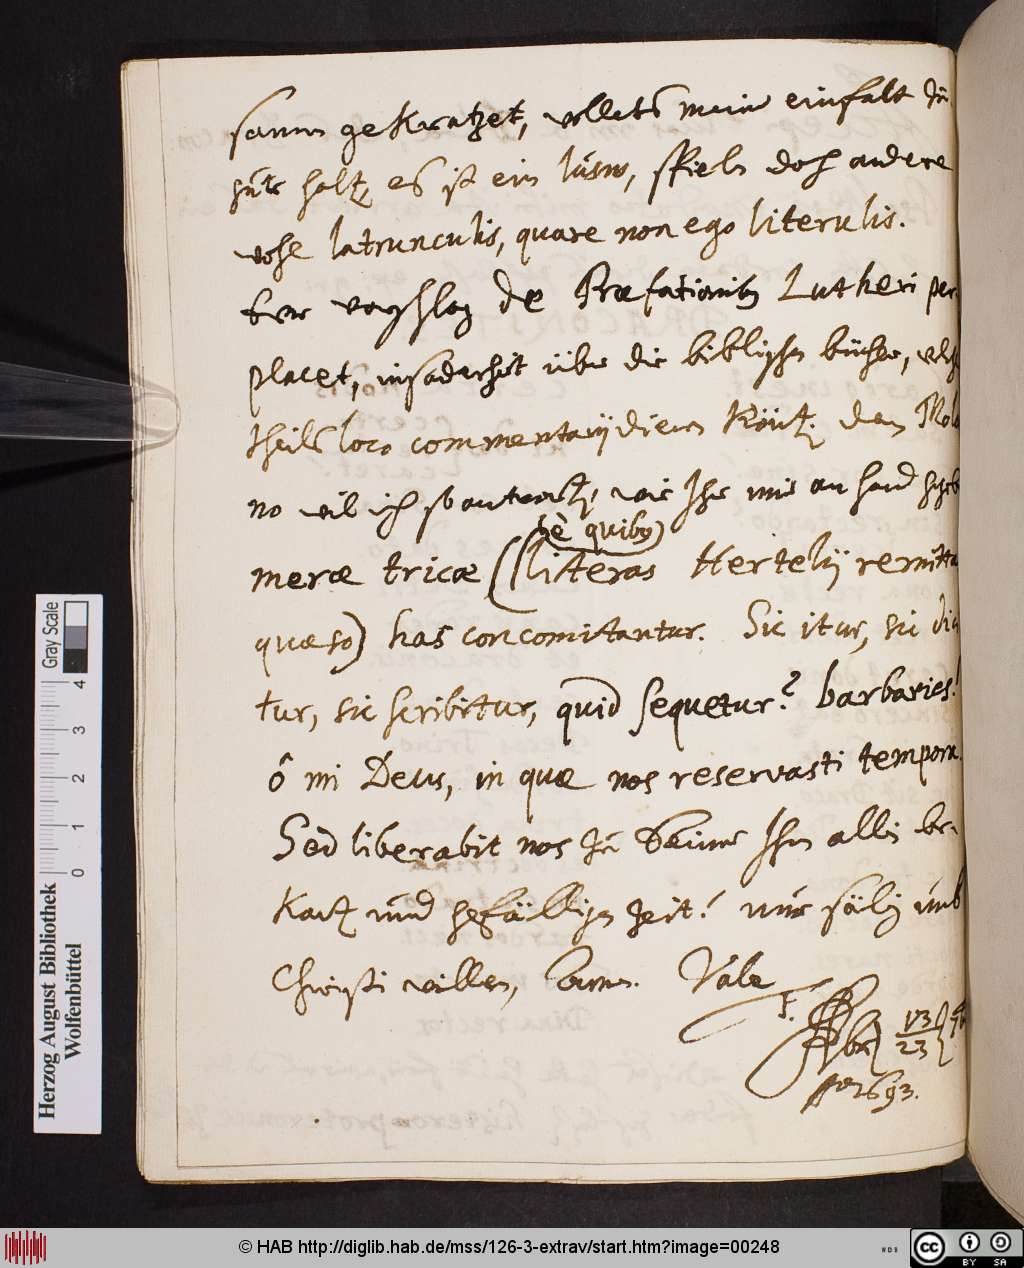 samm gekratzet, wollets meiner einfalt zu
gute halten, es ist ein lusus, spielen doch andere
wohl latrunculis, quare non ego literulis.
Eur vorschlag de Præfationibus Lutheri per-
placet, insonderheit über die biblischen bücher, welche
theils loco commentarij dienen Können. den
no will ich so antworten, wie Ihr mir an hand
meræ tricæ (literas Hertelij remitta
è quibus)
quæso) has concomitantur. Sic itur, sic dici
tur, sic scribitur, quid sequetur? barbaries!
ô mi Deus, in quæ nos reservasti tempora.
Sed liberabit nos zu Seiner Ihm allein be-
Kanten und gefälligen Zeit! nur sälig umb
Christi willen, Amen. Vale
13
23
1693.
Herzog August Bibliothek
Wolfenbüttel
0 1 2 3 4
Gray Scale
© HAB http://diglib.hab.de/mss/126-3-extrav/start.htm?image=00248
CC BY SA